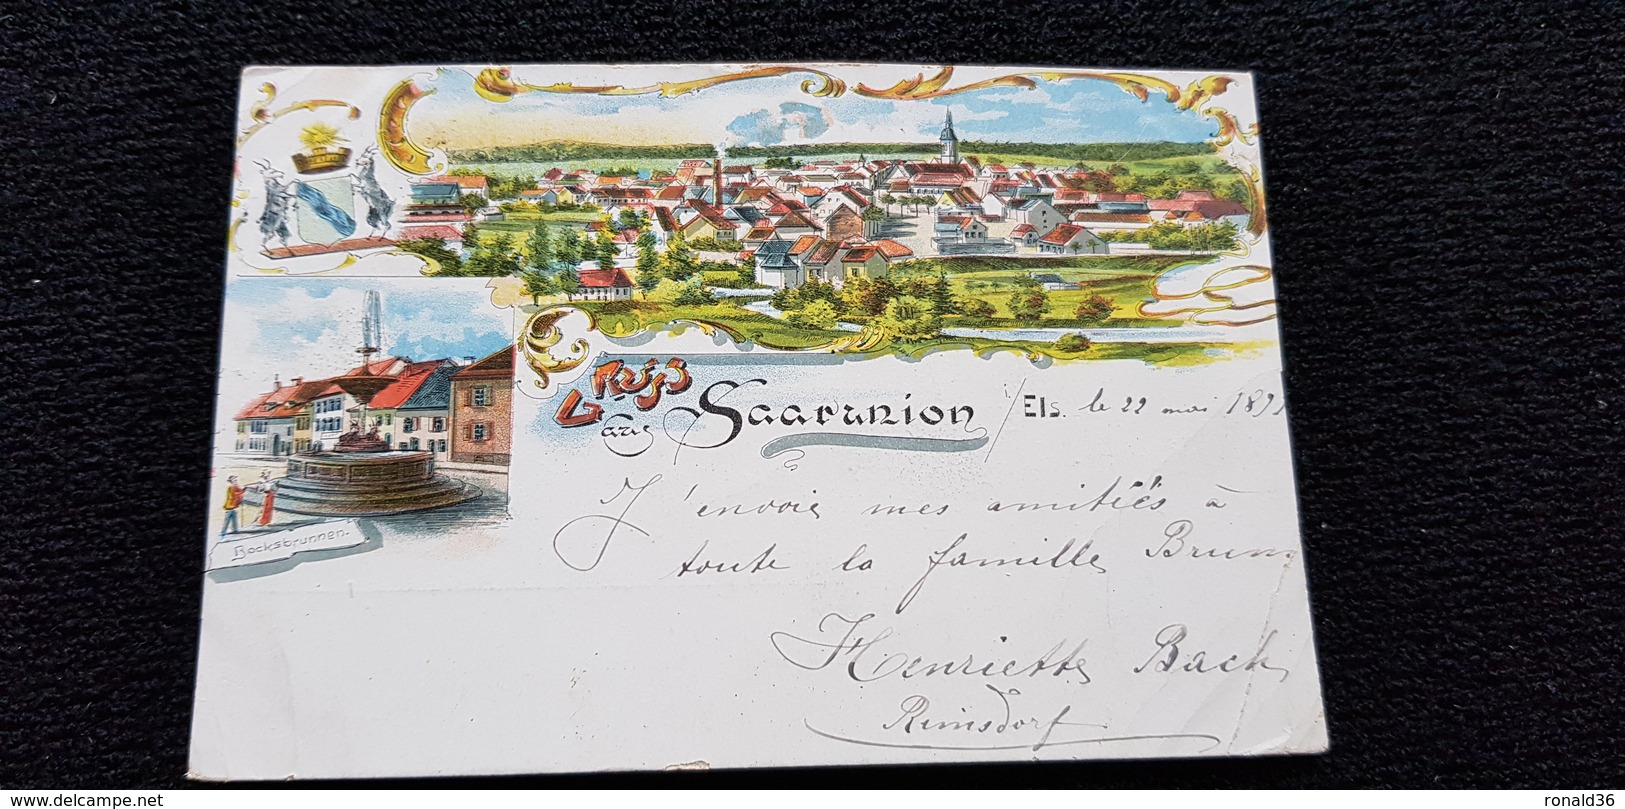 Bocksbrunnen.
Gruss
aus Saarunion / Els. le 22 mai
J'envoie mes amitiés à
toute la famille
Henriette Bach
Rimsdorf
Delcampe.net
ronald36